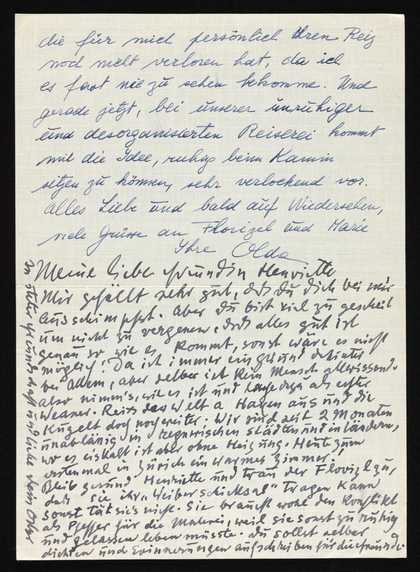 die für mich persönlich ihren Reiz
noch nicht verloren hat, da ich
es fast nie zu sehen bekomme. Und
gerade jetzt, bei unserer unruhigen
und desorganisierten Reiserei kommt
mir die Idee, ruhig beim Kamin
sitzen zu können, sehr verlockend vor.
Alles Liebe und bald auf Wiedersehen,
viele Grüsse an Florizel und Marie
Ihre Olda
Meine liebe Freundin Henriette
Mir gefällt sehr gut, dass du dich bei mir
ausschimpfst. Aber du bist viel zu gescheit
um nicht zu vergessen, dass alles gut ist
genau so wie es kommt, sonst wäre es nicht
möglich. Da ich immer ein
bei allem, aber selber ist kein Mensch
also nimm's, wie es ist und als
Wasser. die
Kugel doch noch weiter. Wir sind seit 2 Monaten
unablässig in regnerischen Städten und in Ländern,
wo es eiskalt ist aber ohne Heizung. Heute zum
erstenmal in Zürich ein warmes Zimmer.
Bleib gesund Henriette und trau der Florizel zu,
dass sie ihr "Weiberschicksal" tragen kann
sonst tut sich's nicht. Sie braucht wohl den Konflikt
als Pfeffer für die Malerei, weil sie sonst zu ruhig
und gelassen leben müsste. du sollst selber
dichten und Erinnerungen aufschreiben für die Freunde
In steter Freundschaft und Liebe dein OKok